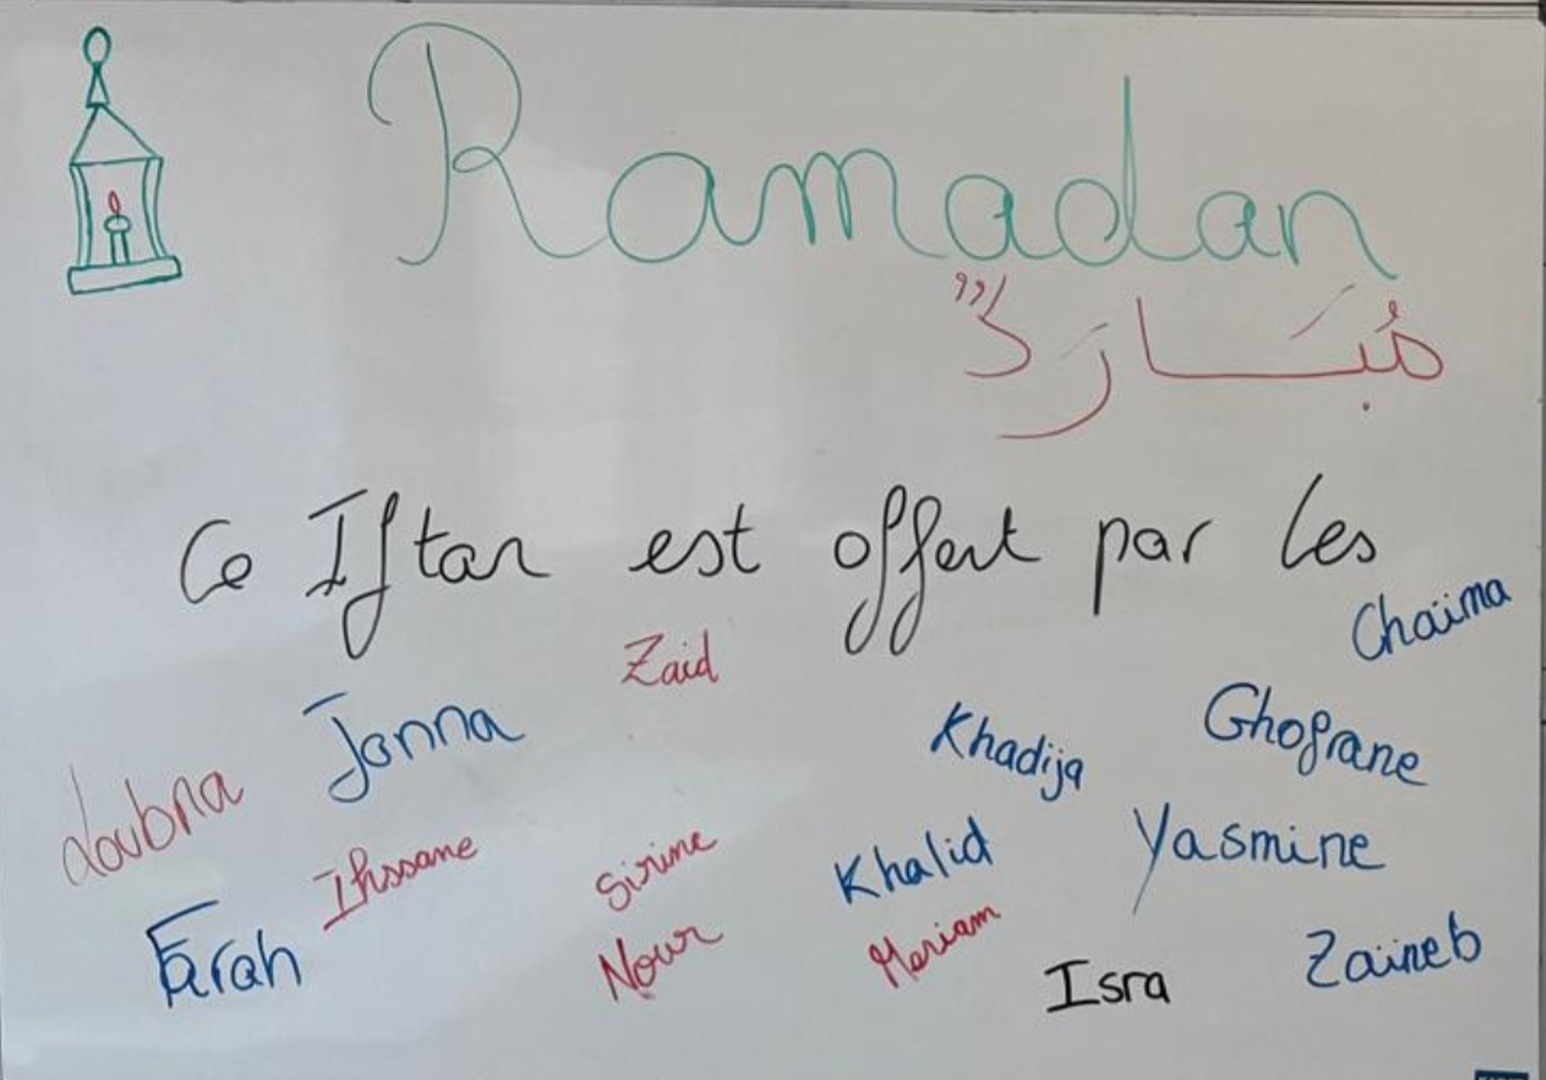 Ramadan
مُبَارَكٌ
Ce Iftar est offert par les
Chaïma
Zaid
Jonna
Khadija
Ghofrane
Loubna
Ihssane
Sirine
Khalid
Yasmine
Farah
Nour
Meriam
Isra
Zaïneb